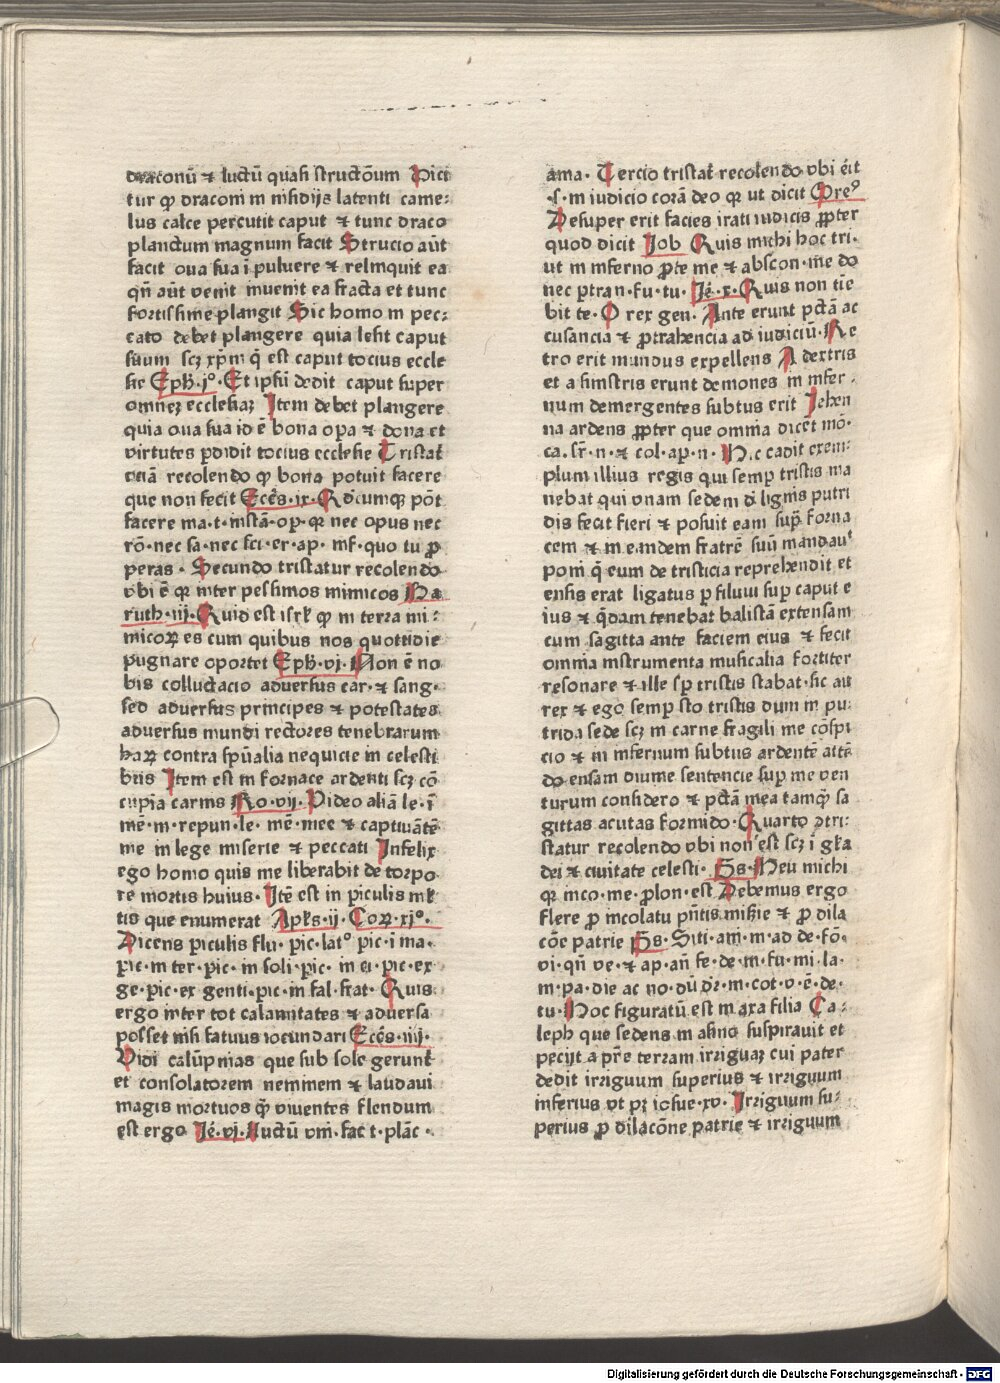 draconū ⁊ luctū quasi structōum Dici
tur ꝙ draconi in insidijs latenti came⸗
lus calce percutit caput ⁊ tunc draco
planctum magnum facit Strucio aūt
facit oua sua ī puluere ⁊ relinquit ea
qn̄ aūt venit inuenit ea fracta et tunc
fortissime plangit Sic homo in pec⸗
cato debet plangere quia lesit caput
suum scꝫ xp̄m q̄ est caput tocius eccle
sie Eph̄·j°·Et ipsū dedit caput super
omneꝫ ecclesiaꝫ Item debet plangere
quia oua sua id ē bona opa ⁊ dona et
virtutes ꝑdidit tocius ecclesie Tristat̄
eciā recolendo ꝙ bona potuit facere
que non fecit Ecces·ix·Qd̄cumqꝫ pōt
facere ma·t·instā·op·qꝛ nec opus nec
rō·nec sa·nec sci·er·ap· inf·quo tu ꝓ
peras· Secundo tristatur recolendo
vbi ē qꝛ inter pessimos inimicos Ba
ruth·iij·Quid est isrl̄ ꝙ in terra ini⸗
micoꝝ es cum quibus nos quottidie
pugnare oportet Eph̄·vj·Non ē no
bis colluctacio aduersus car·⁊ sang·
sed aduersus principes ⁊ potestates
aduersus mundi rectores tenebrarum
haꝝ contra sp̄ualia nequicie in celesti
bus Item est in fornace ardenti scꝫ cō
cupīa carnis Ro·vij·Video aliā le·ī
mē·m·repun·le·mē·mee ⁊ captiuātē
me in lege miserie ⁊ peccati Infelix
ego homo quis me liberabit de corpo
re mortis huius·Itē est in piculis ml̄
tis que enumerat Apls·ij·Coꝝ·xj°·
Dicens piculis flu·pic·lat°pic·i ma·
pic·in ter·pic·in soli·pic· in ci·pic·ex
ge·pic·ex genti·pic·in fal·frat·Quis
ergo inter tot calamitates ⁊ aduersa
posset nisi fatuus iocundari Ecces·iiij·
Vidi calūpnias que sub sole gerunt̄
et consolatorem neminem ⁊ laudaui
magis mortuos q̄ viuentes flendum
est ergo Ie·vj·Luctū vni·fac t·plāc·
ama·Tercio tristat̄ recolendo vbi erit
·s·in iudicio corā deo qꝛ ut dicit Gre⁹
Desuper erit facies irati iudicis ꝓpter
quod dicit Job Quis michi hoc tri·
ut in inferno ꝓte me ⁊ abscon·me do
nec ꝑtran·fu·tu·Ie·x·Quis non tie
bit te·O rex gen·Ante erunt pctā ac
cusancia ⁊ ꝓtrahencia ad iudiciū·Re
tro erit mundus expellens A dextris
et a sinistris erunt demones in infer·
num demergentes subtus erit Jehen
na ardens ꝓpter que omnia dicet mō·
ca·sr̄·n·⁊ col·ap·n·Hic cadit exem⸗
plum illius regis qui semp tristis ma
nebat qui vnam sedem d̄ lignis putri
dis fecit fieri ⁊ posuit eam sup̄ forna
cem ⁊ in eandem fratrē suū mandauᵗ
poni q̄ eum de tristicia reprehendit et
ensis erat ligatus ꝑ filum sup caput e
ius ⁊ q̄dam tenebat balistā extensam
cum sagitta ante faciem eius ⁊ fecit
omnia instrumenta musicalia fortiter
resonare ⁊ ille sp̄ tristis stabat·sic aū
rex ⁊ ego semp sto tristis dum in pu⸗
trida sede scꝫ in carne fragili me cōspi
cio ⁊ in infernum subtus ardentē attē
do ensam diuine sentencie sup me ven
turum considero ⁊ pctā mea tamq̄ sa
gittas acutas formido·Quarto ɔtri⸗
statur recolendo vbi non est scꝫ ī gl̄a
dei ⁊ ciuitate celesti· Ps·Heu michi
qꝛ inco·me·plon·est Debemus ergo
flere ꝓ incolatu pn̄tis mis̄ie ⁊ ꝓ dila
cōe patrie Ps·Siti·am·m·ad de·fō·
vi·qn̄ ve·⁊ ap·an̄ fe·de·m·fu·mi·la·
m·pa·die ac no·dū dr̄·m·cot·v·ē·de·
tu·Hoc figuratū est in axa filia Ca⸗
leph que sedens in asino suspirauit et
pecijt a pr̄e terram irriguaꝫ cui pater
dedit irriguum superius ⁊ irriguum
inferius vt pꝫ iosue·xv·Irriguum su⸗
perius ꝓ dilacōne patrie ⁊ irriguum
Digitalisierung gefördert durch die Deutsche Forschungsgemeinschaft - DFG